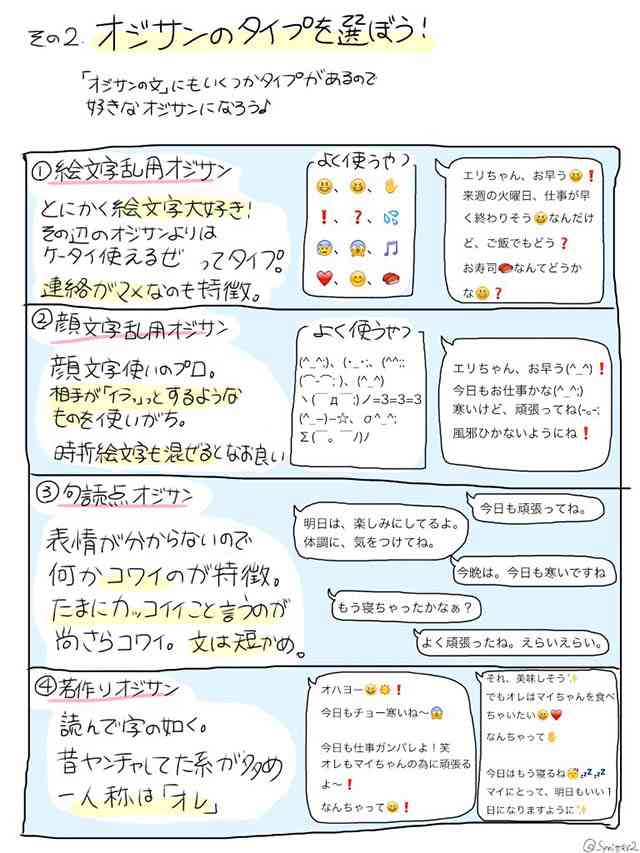 その2. オジサンのタイプを選ぼう!
「オジサンの文」にもいくつかタイプがあるので
好きなオジサンになろう♪
①絵文字乱用オジサン
とにかく絵文字大好き!
その辺のオジサンよりは
ケータイ使えるぜ ってタイプ。
連絡がマメなのも特徴。
よく使うやつ
😃、😄、✋
❗、❓、💦
😰、😱、🎵
❤️、😊、🍣
エリちゃん、お早う😄❗
来週の火曜日、仕事が早
く終わりそう😄なんだけ
ど、ご飯でもどう❓
お寿司🍣なんてどうか
な😄❓
②顔文字乱用オジサン
顔文字使いのプロ。
相手が「イラッ」とするような
ものを使いがち。
時折絵文字も混ぜるとなお良い
よく使うやつ
(^_^;)、(・_・;、(^^;;
(⌒-⌒; )、(^_^)
ヽ(￣д￣;)ノ=3=3=3
(^_−)−☆、σ^_^;
Σ(￣。￣ﾉ)ﾉ
エリちゃん、お早う(^_^)❗
今日もお仕事かな(^_^;)
寒いけど、頑張ってね(-｡-;
風邪ひかないようにね❗
③句読点オジサン
表情が分からないので
何かコワイのが特徴。
たまにカッコイイこと言うのが
尚さらコワイ。文は短かめ。
今日も頑張ってね。
明日は、楽しみにしてるよ。
体調に、気をつけてね。
今晩は。今日も寒いですね
もう寝ちゃったかなぁ？
よく頑張ったね。えらいえらい。
④若作りオジサン
読んで字の如く。
昔ヤンチャしてた系が多め
一人称は「オレ」
オハヨー😄☀️❗
今日もチョー寒いね〜😱
今日も仕事ガンバレよ！笑
オレもマイちゃんの為に頑張る
よ〜❗
なんちゃって😄❗
それ、美味しそう✨
でもオレはマイちゃんを食べ
ちゃいたい😄❤️
なんちゃって✋
今日はもう寝るね😴💤💤
マイにとって、明日もいい1
日になりますように✨